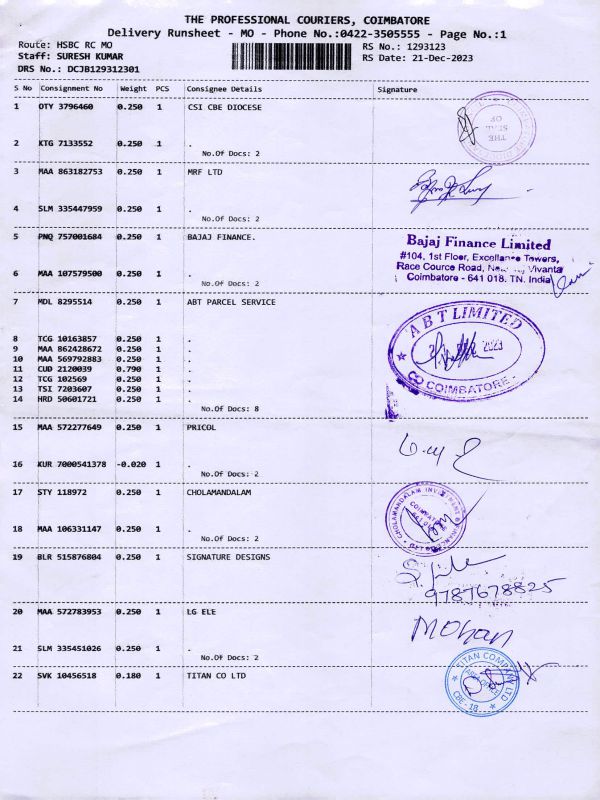 THE PROFESSIONAL COURIERS, COIMBATORE
Delivery Runsheet - MO - Phone No.:0422-3505555 - Page No.:1
Route: HSBC RC MO
RS No.: 1293123
Staff: SURESH KUMAR
RS Date: 21-Dec-2023
DRS No.: DCJB129312301
S No Consignment No Weight PCS Consignee Details Signature
1 OTY 3796460 0.250 1 CSI CBE DIOCESE
SEAL OF
2 KTG 7133552 0.250 1 .
No.Of Docs: 2
3 MAA 863182753 0.250 1 MRF LTD
4 SLM 335447959 0.250 1 .
No.Of Docs: 2
5 PNQ 757001684 0.250 1 BAJAJ FINANCE.
Bajaj Finance Limited
#104, 1st Floor, Excellance Towers,
Race Cource Road, Vivanta
Coimbatore - 641 018. TN. India
6 MAA 107579500 0.250 1 .
No.Of Docs: 2
7 MDL 8295514 0.250 1 ABT PARCEL SERVICE
ABT LIMITED
2023
COIMBATORE -
8 TCG 10163857 0.250 1 .
9 MAA 862428672 0.250 1 .
10 MAA 569792883 0.250 1 .
11 CUD 2120039 0.790 1 .
12 TCG 102569 0.250 1 .
13 TSI 7203607 0.250 1 .
14 HRD 50601721 0.250 1 .
No.Of Docs: 8
15 MAA 572277649 0.250 1 PRICOL
16 KUR 7000541378 -0.020 1 .
No.Of Docs: 2
17 STY 118972 0.250 1 CHOLAMANDALAM
CHOLAMANDALAM INVESTMENT
18 MAA 106331147 0.250 1 .
No.Of Docs: 2
19 BLR 515876804 0.250 1 SIGNATURE DESIGNS
9787678825
20 MAA 572783953 0.250 1 LG ELE
Mohan
21 SLM 335451026 0.250 1 .
No.Of Docs: 2
22 SVK 10456518 0.180 1 TITAN CO LTD
TITAN COMPANY LTD
CBE - 18